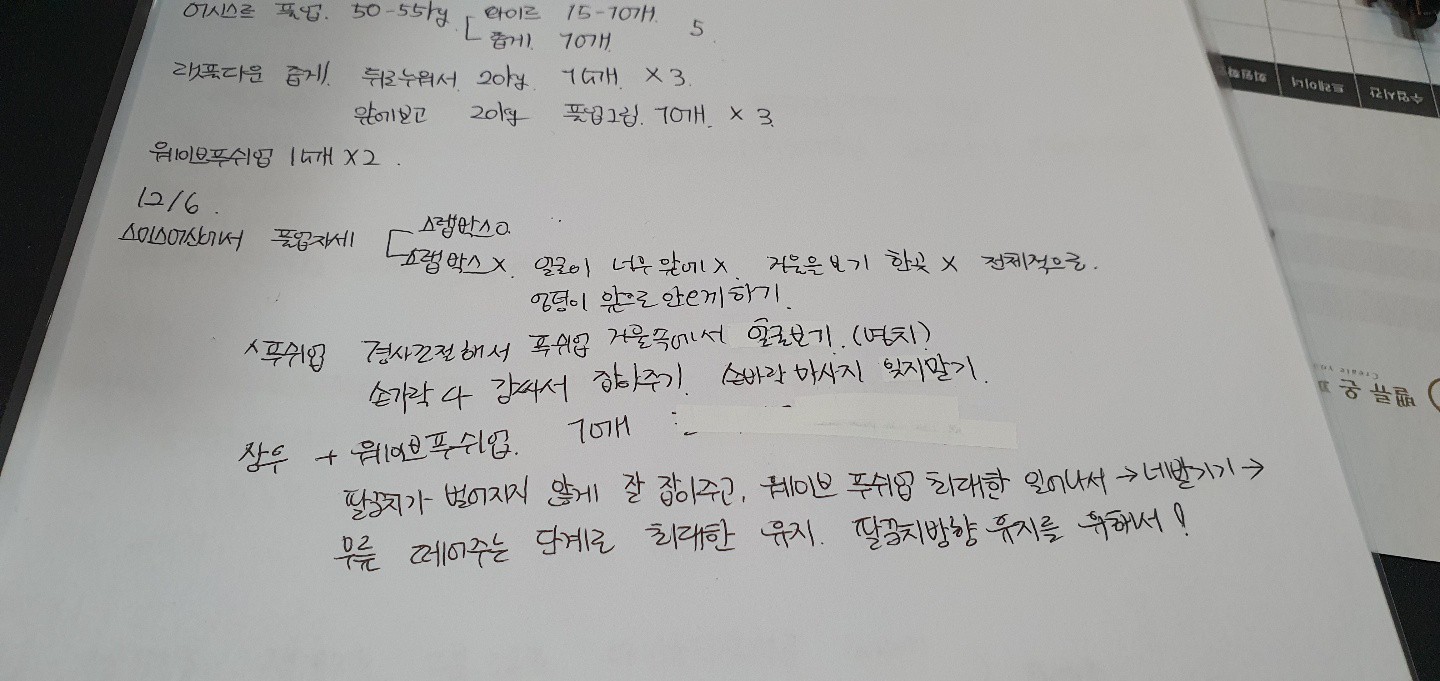 어시스트 풀업. 50-55kg 와이드 15-10개. 5
좁게 10개
랫풀다운 좁게 뒤로누워서 20kg 15개 X 3.
앞에보고 20kg 풀업그립. 10개. X 3
웨이브푸쉬업 15개 X 2.
12/6.
스미스머신에서 풀업자세 스랩박스O
스랩박스X. 얼굴이 너무 앞에X. 거울을보기 한곳 X 전체적으로.
엉덩이 앞으로 안오게하기.
푸쉬업 경사조절해서 푸쉬업 거울속에서 얼굴보기.(명치)
손가락 다 감싸서 잡아주기. 손바닥 마사지 잊지말기.
+ 웨이브푸쉬업. 10개
팔꿈치가 벌어지지 않게 잘 잡아주고, 웨이브 푸쉬업 최대한 일어나서 → 네발기기 →
무릎 떼어주는 단계로 최대한 유지. 팔꿈치방향 유지를 위해서!
회원
트레이너
수업시간